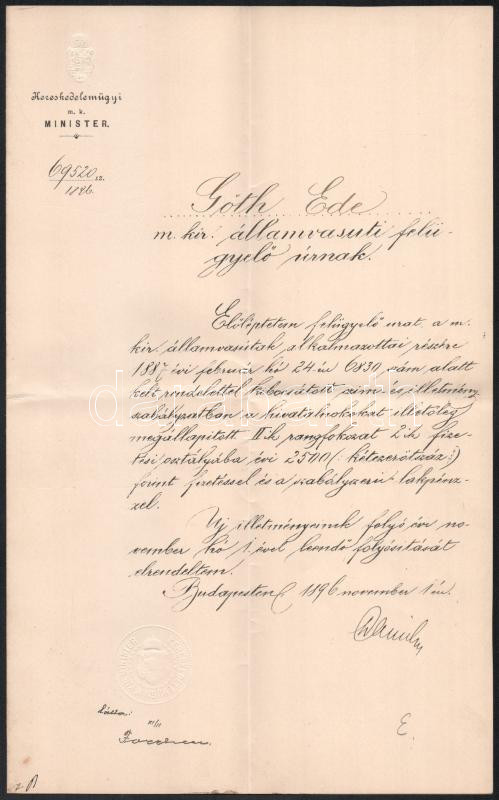 Kereskedelemügyi
m. k.
MINISTER.
69520 sz.
1896.
Góth Ede
m. kir. államvasuti felü-
gyelő úrnak.
Előléptetem felügyelő urat, a m.
kir. államvasútak alkalmazottai részére
1887 évi február hó 24 én 6830 szám alatt
kelt rendelettel kibocsátott szim és illetmény
szabályzatban a hivatalnokokat illetőleg
megállapitott II-ik rangfokozat 2-ik fize-
tési osztályába évi 2500 /: kétezerötszáz :/
forint fizetéssel és a szabályszerü lakpénz-
zel.
Uj illetményeinek folyó évi no-
vember hó 1. ével leendő folyósitását
elrendeltem.
Budapesten, 1896 november 1 én.
Látta:
XI/11
E.